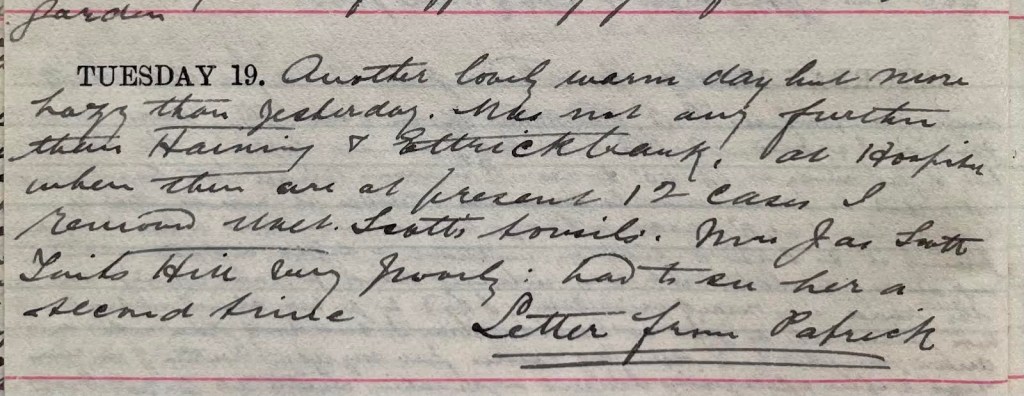 garden
TUESDAY 19. Another lovely warm day but more
hazy than yesterday. Was not any further
than Haining & Ettrickbank. at Hospital
when there are at present 12 cases I
removed Scott's tonsils. Mrs Jas Scott
Hill very poorly: had to see her a
second time Letter from Patrick